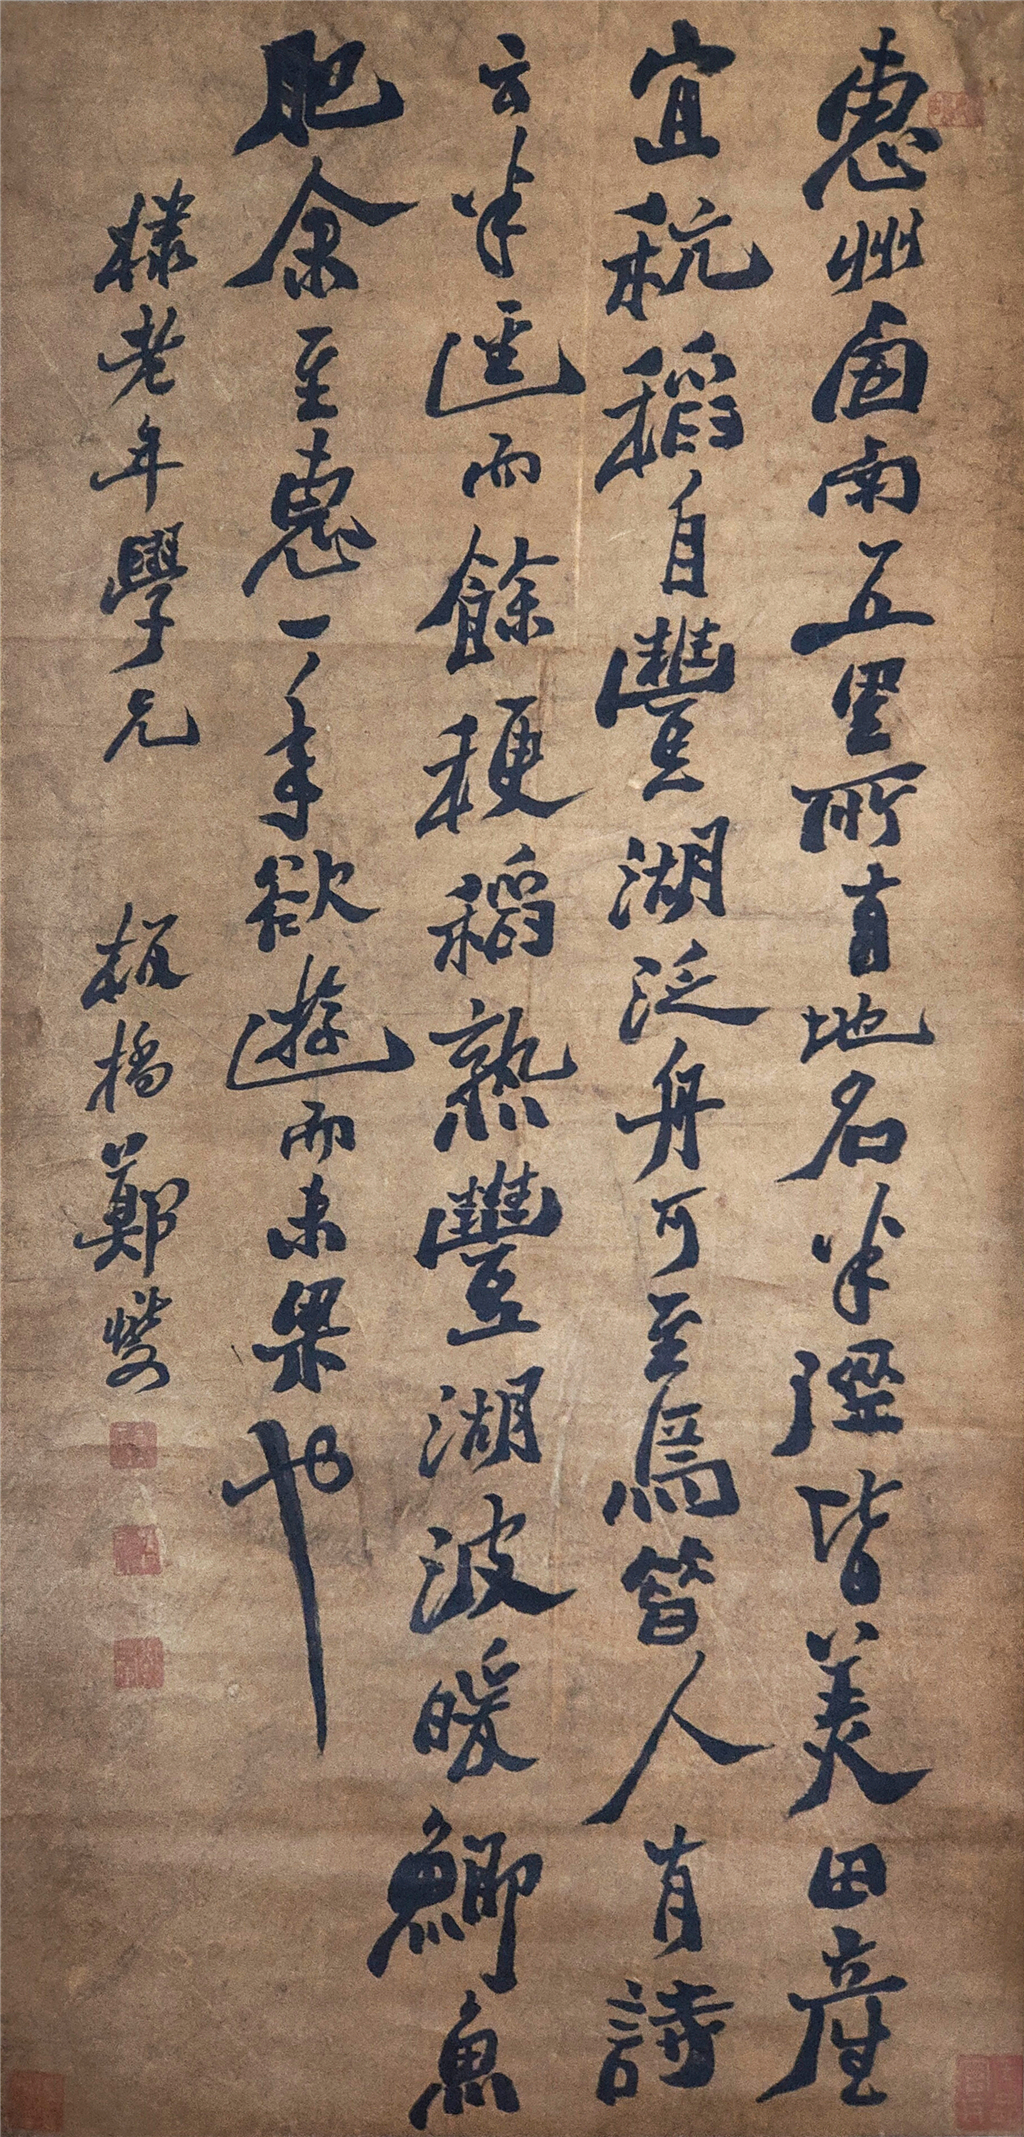 惠州西南五里所有地名半逕皆美田產
宜秔稻自豐湖泛舟可至焉昝人有詩
云半逕雨餘粳稻熟豐湖波暖鯽魚
肥余至惠一年欲遊而未果也
樣老年學兄
板橋鄭燮